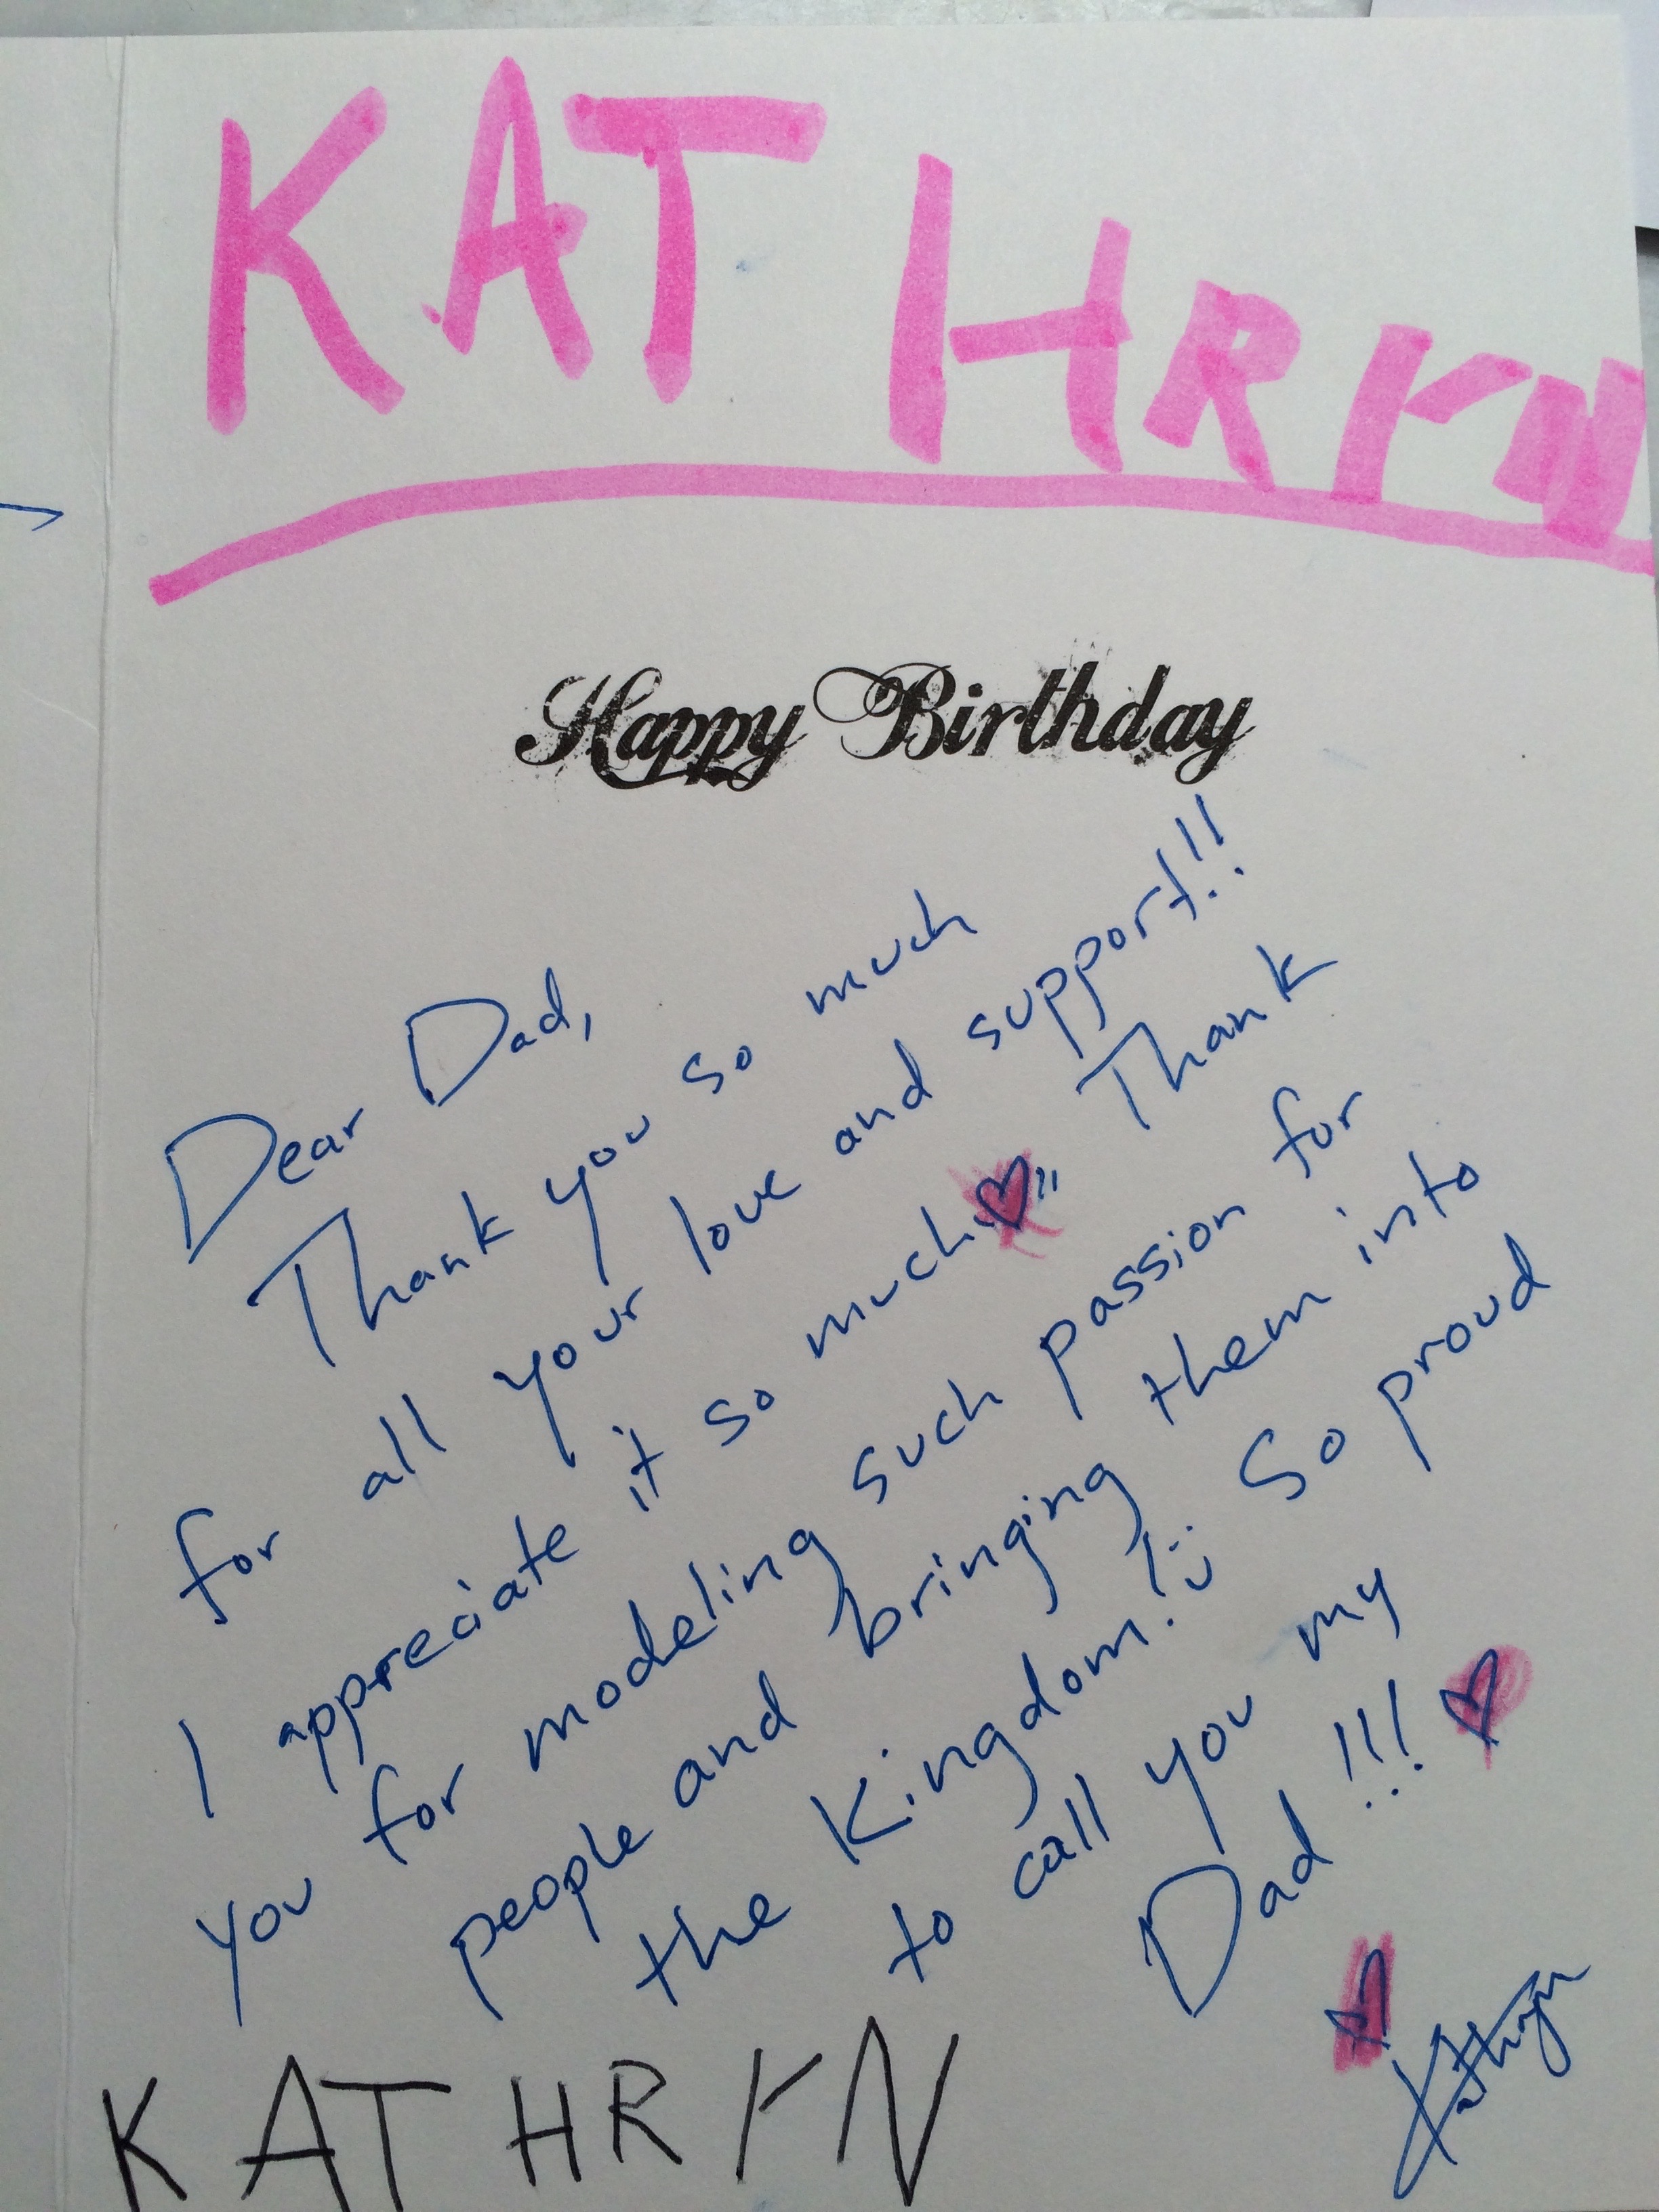 KATHRYN
Happy Birthday
Dear Dad,
Thank you so much
for all your love and support!!
I appreciate it so much ♡!! Thank
you for modeling such passion for
people and bringing them into
the Kingdom! :) So proud
to call you my
Dad!!! ♡
♡ Kathryn
KATHRYN